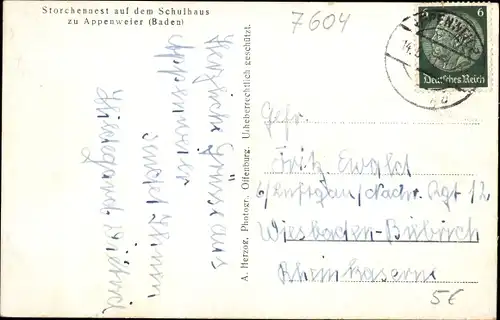 Storchennest auf dem Schulhaus
zu Appenweier (Baden)
7604
6 6
Deutsches Reich
Herzliche Grüsse aus
Appenweier
sendet Ihnen
Hildegard
A. Herzog, Photogr. Offenburg. Urheberrechtlich geschützt.
Gefr.
Fritz Ewald
6/Luftgau/Nachr. Rgt 12
Wiesbaden-Biebrich
Rheinkaserne
5€